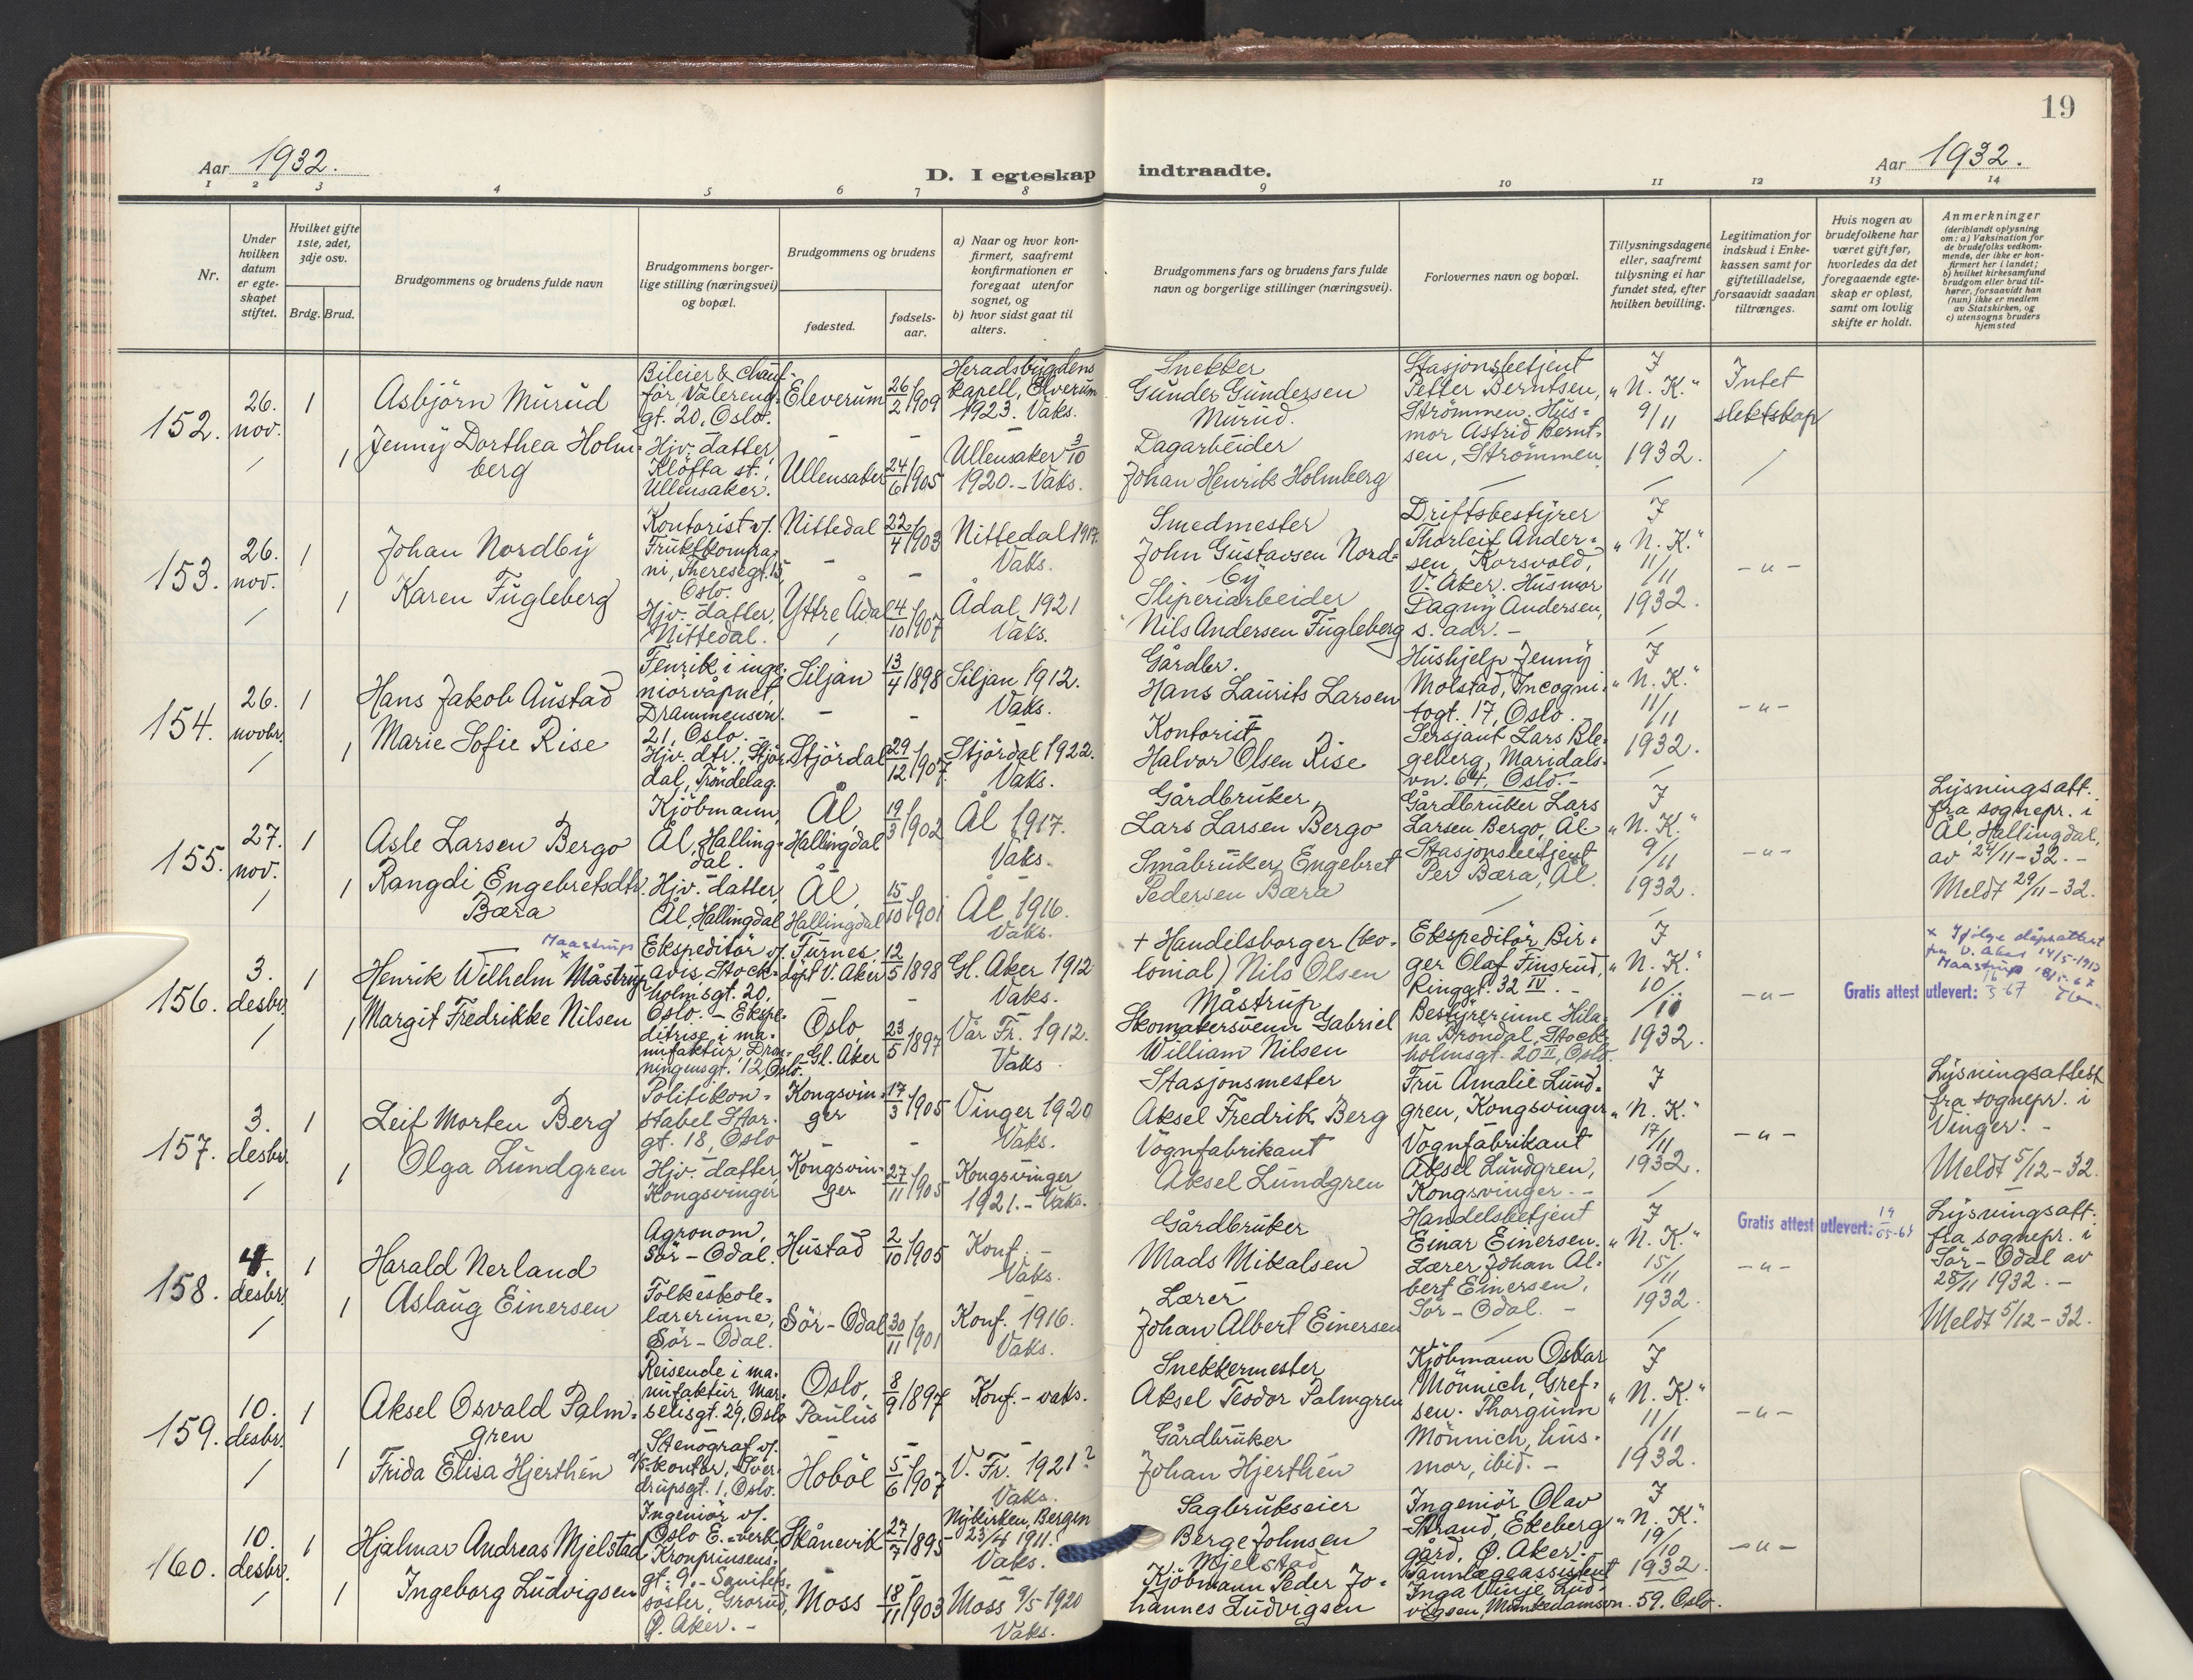 19
Aar 1932.
D. I egteskap indtraadte.
Aar 1932.
1 2 3 4 5 6 7 8 9 10 11 12 13 14
Nr.
Under hvilken datum er egteskapet stiftet.
Hvilket gifte 1ste, 2det, 3dje osv.
Brdg. Brud.
Brudgommens og brudens fulde navn
Brudgommens borgerlige stilling (næringsvei) og bopæl.
Brudgommens og brudens
fødested.
fødselsaar.
a) Naar og hvor konfirmert, saafremt konfirmationen er foregaat utenfor sognet, og
b) hvor sidst gaat til alters.
Brudgommens fars og brudens fars fulde navn og borgerlige stillinger (næringsvei).
Forlovernes navn og bopæl.
Tillysningsdagene eller, saafremt tillysning ei har fundet sted, efter hvilken bevilling.
Legitimation for indskud i Enkekassen samt for giftetilladelse, forsaavidt saadan tiltrænges.
Hvis nogen av brudefolkene har været gift før, hvorledes da det foregaaende egteskap er opløst, samt om lovlig skifte er holdt.
Anmerkninger (deriblandt oplysning om: a) Vaksination for de brudefolks vedkommende, der ikke er konfirmert her i landet; b) hvilket kirkesamfund brudgom eller brud tilhører, forsaavidt han (hun) ikke er medlem av Statskirken, og c) utensogns bruders hjemsted
152. 26. nov. 1
Asbjörn Murud
Bileier & chaufför Vålereng. gt. 20, Oslo.
Eleverum 26/2 1909
Heradsbygdens kapell, Elverum 1923. Vaks.
Snekker Gunder Gundersen Murud.
Stasjonsbetjent Petter Berntsen, Strömmen. Husmor Astrid Berntsen, Strömmen.
I "N. K." 9/11 1932.
Intet slektskap
1 Jenny Dorthea Holmberg
Hjv. datter, Klöfta st., Ullensaker.
Ullensaker 24/6 1905
Ullensaker 3/10 1920. - Vaks.
Dagarbeider Johan Henrik Holmberg
153. 26. nov. 1
Johan Nordby
Kontorist v/. Fruktkompani, Theresegt. 15, Oslo.
Nittedal 22/4 1903
Nittedal 1917. Vaks.
Smedmester John Gustavsen Nordby
Driftsbestyrer Thorleif Andersen, Korsvold, V. Aker. Husmor Dagny Andersen, s. adr. -
I "N. K." 11/11 1932.
- " -
1 Karen Fugleberg
Hjv. datter, Nittedal.
Yttre Ådal 4/10 1907
Ådal 1921 Vaks.
Sliperiarbeider Nils Andersen Fugleberg
154. 26. novbr. 1
Hans Jakob Austad
Fenrik i ingeniörvåpnet, Drammensvn. 21, Oslo. -
Siljan 13/4 1898
Siljan 1912. Vaks.
Gårdbr. Hans Laurits Larsen
Hushjelp Jenny Molstad, Incognitogt. 17, Oslo. - Sersjant Lars Blegeberg, Maridalsvn. 64, Oslo. -
I "N. K." 11/11 1932.
- " -
1 Marie Sofie Rise
Hjv. dtr., Stjördal, Tröndelag.
Stjördal 29/12 1907
Stjördal 1922. Vaks.
Kontorist Halvor Olsen Rise
155. 27. nov. 1
Asle Larsen Bergo
Kjöbmann, Ål, Hallingdal.
Ål, Hallingdal 19/3 1902
Ål 1917. Vaks.
Gårdbruker Lars Larsen Bergo
Gårdbruker Lars Larsen Bergo, Ål Stasjonsbetjent Per Bæra, Ål.
I "N. K." 9/11 1932.
- " -
Lysningsatt. fra sognepr. i Ål, Hallingdal, av 24/11-32. - Meldt 29/11-32.
1 Rangdi Engebretsdtr. Bæra
Hjv. datter, Ål, Hallingdal
Ål, Hallingdal 15/10 1901
Ål 1916. Vaks.
Småbruker Engebret Pedersen Bæra
156. 3. desbr. 1
Maastrup x
Henrik Wilhelm Måstrup
Ekspeditör v/. avis, Stockholmsgt. 20, Oslo. -
Furnes, döpt V. Aker 12/5 1898
Gl. Aker 1912 Vaks.
+ Handelsborger (kolonial) Nils Olsen Måstrup
Ekspeditör Birger Olaf Finsrud, Ringgt. 32 IV. - Bestyrerinne Hilana Bröndal, Stockholmsgt. 20 II, Oslo.
I "N. K." 10/11 1932.
- " -
Gratis attest utlevert:
x Ifölge dåpsattest fra V. Aker 14/5-1912 Maastrup
1 Margit Fredrikke Nilsen
Ekspeditrise i manufaktur, Dronningensgt. 12, Oslo.
Oslo, Gl. Aker 23/5 1897
Vår Fr. 1912. Vaks.
Skomakersvenn Gabriel William Nilsen
157. 3. desbr. 1
Leif Morten Berg
Politikonstabel Storgt. 18, Oslo
Kongsvinger 17/3 1905
Vinger 1920 Vaks.
Stasjonsmester Aksel Fredrik Berg
Fru Amalie Lundgren, Kongsvinger. Vognfabrikant Aksel Lundgren, Kongsvinger. -
I "N. K." 17/11 1932.
- " -
Lysningsattest fra sognepr. i Vinger. - Meldt 5/12-32.
1 Olga Lundgren
Hjv. datter, Kongsvinger
Kongsvinger 27/11 1905
Kongsvinger 1921. - Vaks.
Vognfabrikant Aksel Lundgren
158. 4. desbr. 1
Harald Nerland
Agronom, Sör-Odal.
Hustad 2/10 1905
Konf. - Vaks.
Gårdbruker Mads Mikalsen
Handelsbetjent Einar Einersen. Lærer Johan Albert Einersen, Sör-Odal. -
I "N. K." 15/11 1932.
- " -
Gratis attest utlevert:
Lysningsatt. fra sognepr. i Sör-Odal av 28/11 1932. - Meldt 5/12-32.
1 Aslaug Einersen
Folkeskolelærerinne, Sör-Odal.
Sör-Odal 30/11 1901
Konf. 1916. Vaks.
Lærer Johan Albert Einersen
159. 10. desbr. 1
Aksel Osvald Palmgren
Reisende i manufaktur, Marselisgt. 29, Oslo
Oslo, Paulus 8/9 1897
Konf. - vaks.
Snekkermester Aksel Teodor Palmgren
Kjöbmann Oskar Mönnich, Grefsen. Thorgunn Mönnich, husmor, ibid. -
I "N. K." 11/11 1932.
- " -
1 Frida Elisa Hjerthén
Stenograf v/. kontor, Sverdrupsgt. 1, Oslo.
Hoböl 5/6 1907
V. Fr. 1921? Vaks.
Gårdbruker Johan Hjerthén
160. 10. desbr. 1
Hjalmar Andreas Mjelstad
Ingeniör v/. Oslo E.-verk, Kronprinsensgt. 9. -
Skånevik 27/7 1895
Nykirken, Bergen 23/4 1911. Vaks.
Sagbrukseier Berge Johnsen Mjelstad
Ingeniör Olav Strand, Ekeberg gård, Ö. Aker. - Tannlegeassistent Inga Vinje Ludvigsen, Munkedamsvn. 59. Oslo.
I "N. K." 19/10 1932.
- " -
1 Ingeborg Ludvigsen
söster, Grorud, Ö. Aker. -
Moss 18/11 1903
Moss 9/5 1920 Vaks.
Kjöbmann Peder Johannes Ludvigsen